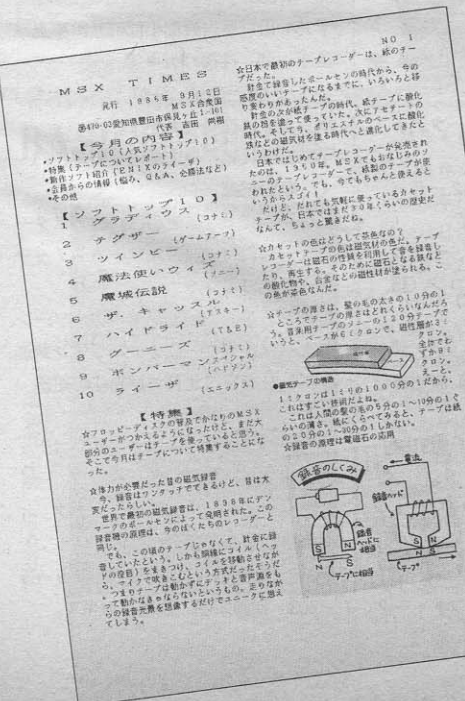 NO 1
MSX TIMES
発行 1986年 9月12日
MSX合衆国
代表 吉田
【今月の内容】
•ソフトトップ10(人気ソフトトップ10)
•特集(テープについてレポート)
•新作ソフト紹介(ENIXのライーザ)
•会員からの情報(悩み、Q&A、全勝法など)
•その他
【ソフトトップ10】
1 グラディウス (コナミ)
2 テグザー (ゲームアーツ)
3 ツインビー (コナミ)
4 魔法使いウィズ (ソニー)
5 魔城伝説 (コナミ)
6 ザ、キャッスル (アスキー)
7 ハイドライド (T&E)
8 グーニーズ (コナミ)
9 ボンバーマンスペシャル (ハドソン)
10 ライーザ (エニックス)
【特集】
☆フロッピーディスクの普及でかなりのMSX
ユーザーがつかえるようになったけど、まだ大
部分のユーザーはテープを使っていると思う。
そこで今月はテープについて特集することにな
った。
☆体力が必要だった昔の磁気録音
今、録音はワンタッチでできるけど、昔は大
変だったらしい。
世界で最初の磁気録音は、1898年にデン
マークのポールセンによって発明された。この
録音機の原理は、今のぼくたちのレコーダーと
同じ。
でも、この頃のテープじゃなくて、針金に録
音していたという。しかも銅線にコイル(ヘッ
ドの役目)をまきつけ、コイルを移動させなが
ら、マイクで吹きこむという方式だったそうだ
。つまりテープは動かずにデッキと音声源をも
って動かなきゃならないというもの。走りなが
らの録音光景を想像するだけでユニークに思え
てしまう。
☆日本で最初のテープレコーダーは、紙のテー
プだった。
針金で録音したポールセンの時代から、今の
感度のいいテープになるまでに、いろいろと移
り変わりがあったんだ。
針金の次が紙テープの時代。紙テープに酸化
鉄の粉を塗って使っていた。次にアセテートの
時代。そしてう、ポリエステルのベースに酸化
鉄などの磁気材を塗る時代へと進化してきたと
いうわけだ。
日本ではじめてテープレコーダーが発売され
たのは、1950年。MSXでもおなじみのソ
ニーのテープレコーダーで、紙製のテープが使
われたという。でも、今でもちゃんと使えると
いうからスゴイ!
だけど、だれでも気軽に使っているカセット
テープが、日本ではまだ30年くらいの歴史だ
なんて、ちょっと驚きだね。
☆カセットの色はどうして茶色なの?
カセットテープの色は磁気材の色だ。テープ
レコーダーは磁石の性質を利用して音を録音し
たり、再生する。そのために磁石となる鉄など
の酸化物や、合金などの磁性材が塗られる。こ
の色が茶色なんだ。
☆テープの厚さは、髪の毛の太さの10分の1
ところでテープの厚さはどれくらいなんだろ
う。音楽用テープのソニーの120分テープで
いうと、ベースが6ミクロンで、磁性層が3ミ
クロン。
全体でわ
ずか9ミ
クロン。
えーと、
●磁気テープの構造
1ミクロンは1ミリの1000分の1だから、
これはすごい技術だよね。
これは人間の髪の毛の5分の1〜10分の1ぐ
らいの薄さ。紙にくらべてみると、テープは紙
の20分の1〜30分の1しかない。
☆録音の原理は電磁石の応用
録音のしくみ
録音
ヘッドに
相当
S N
N S
テープに相当
電流
録音ヘッド
N S
S N
テープ